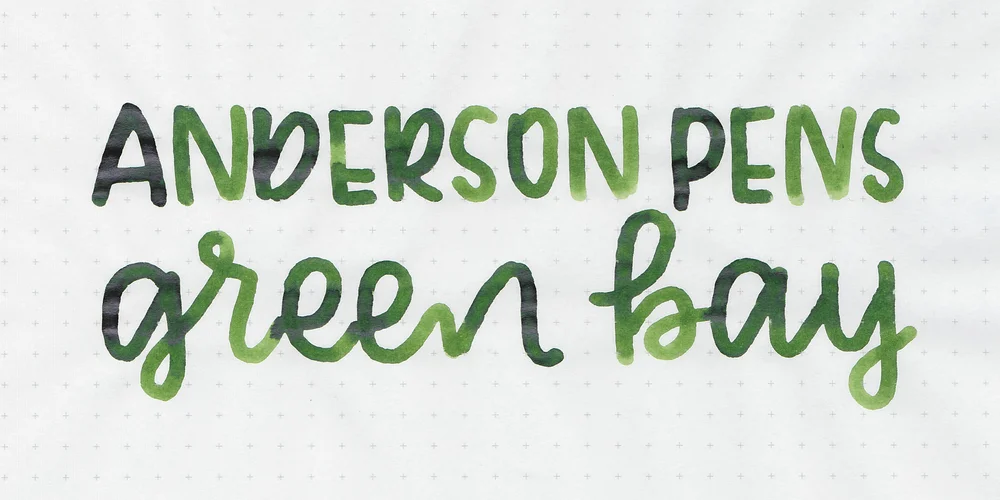 ANDERSON PENS
green bay